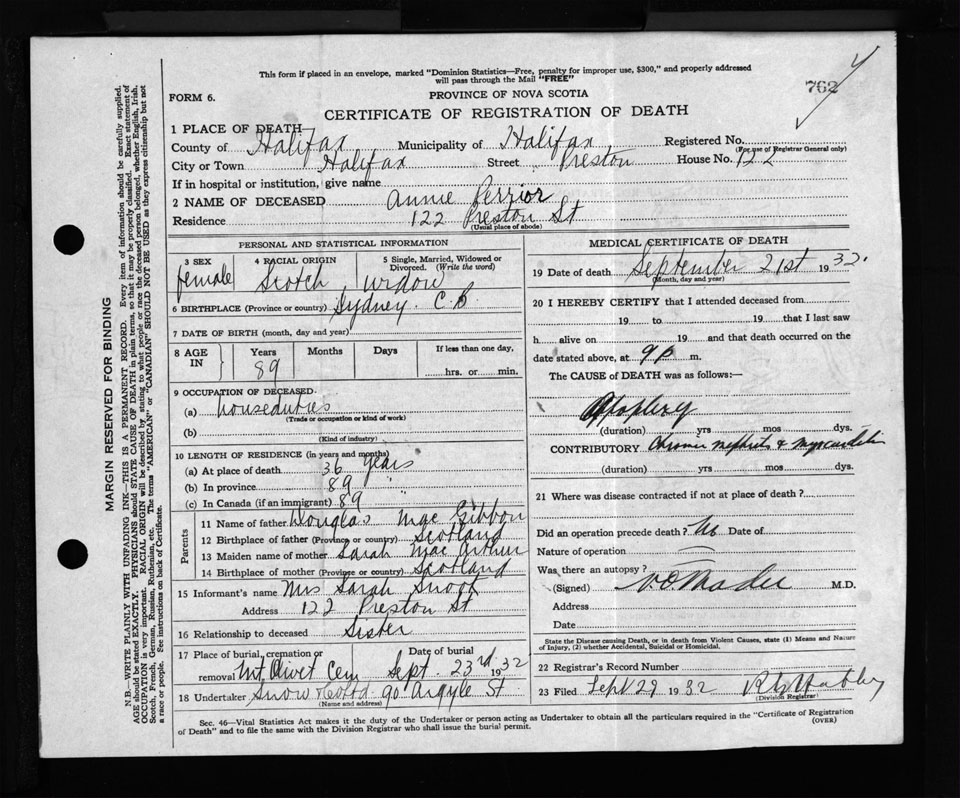 This form if placed in an envelope, marked "Dominion Statistics—Free, penalty for improper use, $300," and properly addressed
will pass through the Mail "FREE"
762
FORM 6.
PROVINCE OF NOVA SCOTIA
CERTIFICATE OF REGISTRATION OF DEATH
1 PLACE OF DEATH
County of Halifax Municipality of Halifax Registered No.
(For use of Registrar General only)
City or Town Halifax Street Preston House No. 122
If in hospital or institution, give name
2 NAME OF DECEASED Annie Perrior
Residence 122 Preston St
(Usual place of abode)
PERSONAL AND STATISTICAL INFORMATION
3 SEX female
4 RACIAL ORIGIN Scotch
5 Single, Married, Widowed or
Divorced. (Write the word)
widow
6 BIRTHPLACE (Province or country) Sydney C.B.
7 DATE OF BIRTH (month, day and year)
8 AGE IN
Years Months Days If less than one day,
89 hrs. or min.
9 OCCUPATION OF DECEASED
(a) houseduties
(Trade or occupation or kind of work)
(b)
(Kind of industry)
10 LENGTH OF RESIDENCE (in years and months)
(a) At place of death 36 years
(b) In province 89 "
(c) In Canada (if an immigrant) 89
Parents
11 Name of father Douglas MacGibbon
12 Birthplace of father (Province or country) Scotland
13 Maiden name of mother Sarah MacArthur
14 Birthplace of mother (Province or country) Scotland
15 Informant's name Mrs Sarah Snook
Address 122 Preston St
16 Relationship to deceased Sister
17 Place of burial, cremation or
removal Mt Olivet Cem
Date of burial
Sept. 23rd 1932
18 Undertaker Snow & Co Ltd 90 Argyle St.
(Name and address)
MEDICAL CERTIFICATE OF DEATH
19 Date of death September 21st 1932.
(Month, day and year)
20 I HEREBY CERTIFY that I attended deceased from
19 to 19 that I last saw
h alive on 19 and that death occurred on the
date stated above, at 9 p m.
The CAUSE of DEATH was as follows:—
Apoplexy
(duration) yrs mos dys.
CONTRIBUTORY Chronic nephritis & myocarditis
(duration) yrs mos dys.
21 Where was disease contracted if not at place of death?
Did an operation precede death? No Date of
Nature of operation
Was there an autopsy?
(Signed) V.O. Mader M.D.
Address
Date
State the Disease causing Death, or in death from Violent Causes, state (1) Means and Nature
of Injury, (2) whether Accidental, Suicidal or Homicidal.
22 Registrar's Record Number
23 Filed Sept 29 1932
(Division Registrar)
Sec. 46—Vital Statistics Act makes it the duty of the Undertaker or person acting as Undertaker to obtain all the particulars required in the "Certificate of Registration
of Death" and to file the same with the Division Registrar who shall issue the burial permit.
(OVER)
MARGIN RESERVED FOR BINDING
N.B.—WRITE PLAINLY WITH UNFADING INK—THIS IS A PERMANENT RECORD. Every item of information should be carefully supplied.
AGE should be stated EXACTLY. PHYSICIANS should STATE CAUSE OF DEATH in plain terms, so that it may be properly classified. Exact statement of
OCCUPATION is very important. RACIAL ORIGIN will be described by stating to what people or race the deceased person belonged, whether English, Irish,
Scotch, French, German, Russian, Ruthenian, etc. The terms "AMERICAN" or "CANADIAN" SHOULD NOT BE USED as they express citizenship but not
a race or people. See instructions on back of Certificate.